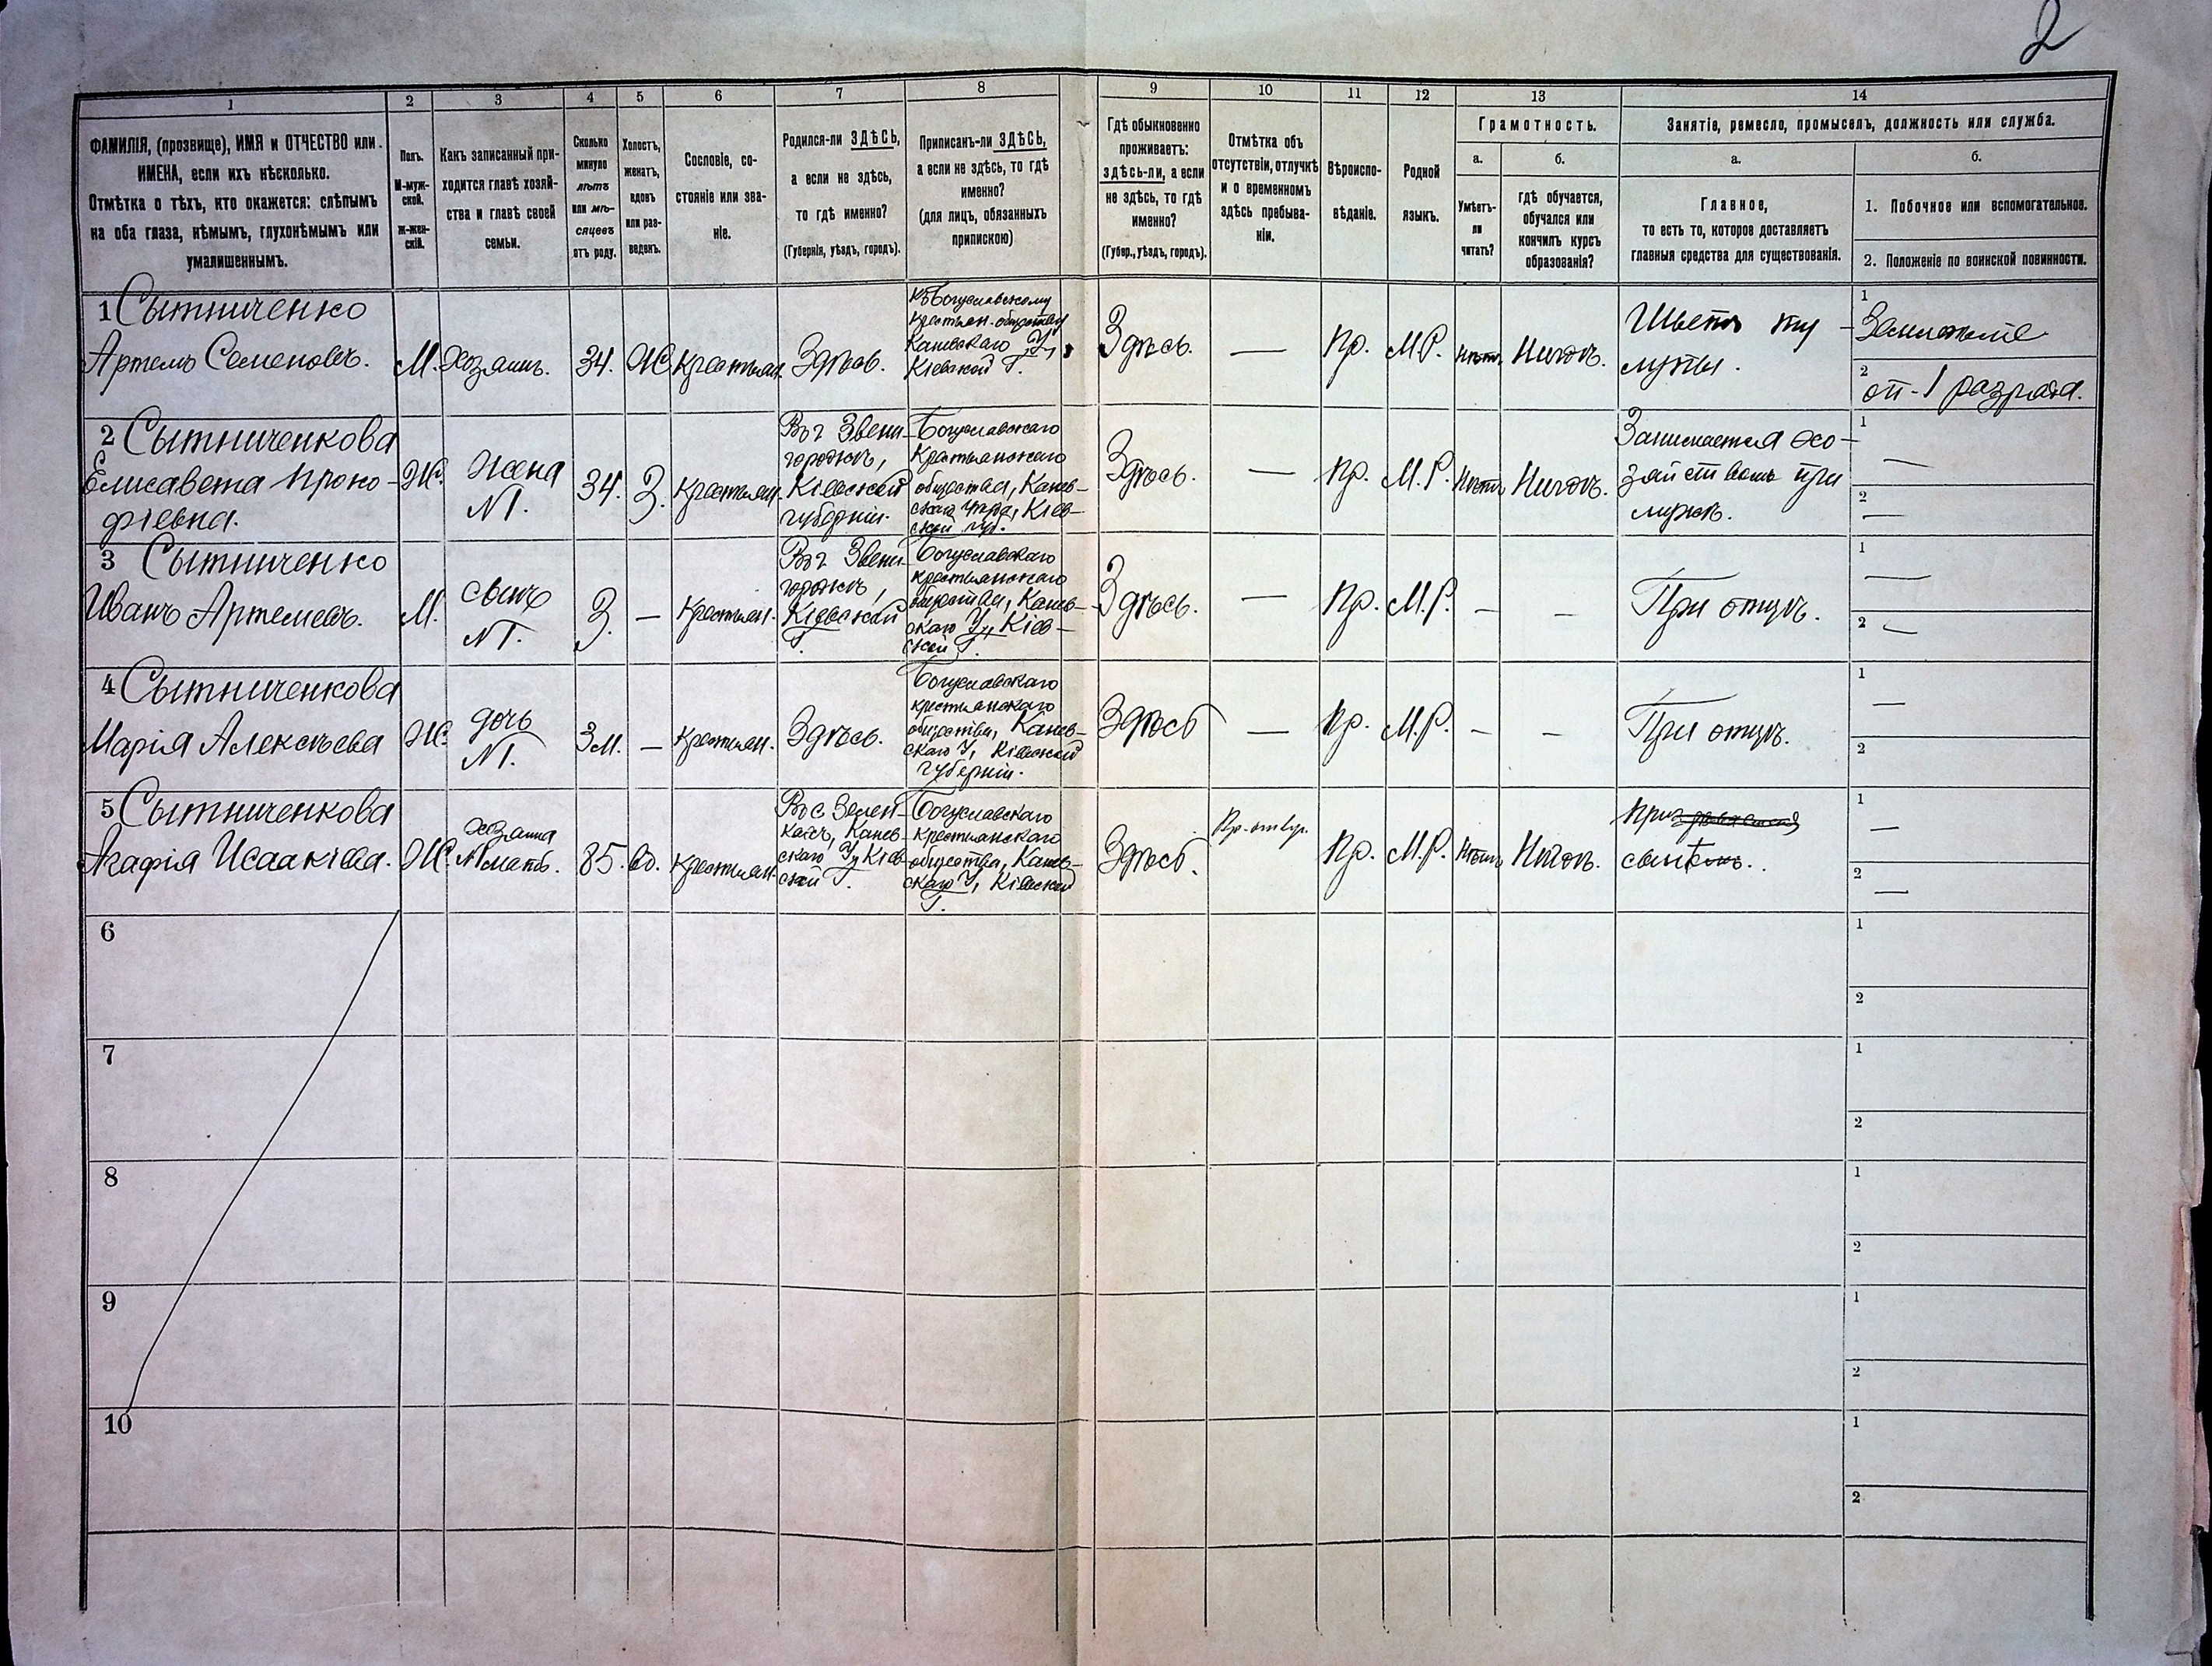 2
1 2 3 4 5 6 7 8 9 10 11 12 13 14
ФАМИЛІЯ, (прозвище), ИМЯ и ОТЧЕСТВО или
ИМЕНА, если ихъ нѣсколько.
Отмѣтка о тѣхъ, кто окажется: слѣпымъ
на оба глаза, нѣмымъ, глухонѣмымъ или
умалишеннымъ.
Полъ.
М-муж-
ской.
Ж-жен-
скій.
Какъ записанный при-
ходится главѣ хозяй-
ства и главѣ своей
семьи.
Сколько
минуло
лѣтъ
или мѣ-
сяцевъ
отъ роду.
Холостъ,
женатъ,
вдовъ
или раз-
веденъ.
Сословіе, со-
стояніе или зва-
ніе.
Родился-ли ЗДѢСЬ,
а если не здѣсь,
то гдѣ именно?
(Губернія, уѣздъ, городъ).
Приписанъ-ли ЗДѢСЬ,
а если не здѣсь, то гдѣ
именно?
(для лицъ, обязанныхъ
припискою)
Гдѣ обыкновенно
проживаетъ:
здѣсь-ли, а если
не здѣсь, то гдѣ
именно?
(Губер., уѣздъ, городъ).
Отмѣтка объ
отсутствіи, отлучкѣ
и о временномъ
здѣсь пребыва-
ніи.
Вѣроиспо-
вѣданіе.
Родной
языкъ.
Грамотность.
а.
Умѣетъ-
ли
читать?
б.
гдѣ обучается,
обучался или
кончилъ курсъ
образованія?
Занятіе, ремесло, промыселъ, должность или служба.
а.
Главное,
то есть то, которое доставляетъ
главныя средства для существованія.
б.
1. Побочное или вспомогательное.
2. Положеніе по воинской повинности.
1 Сытниченко
Артемъ Семеновъ.
М.
Хозяинъ.
34.
Ж
Крестьян.
Здѣсь.
Къ Богуславскому
крестьян. обществу
Каневскаго У,
Кіевской Г.
Здѣсь.
—
Пр.
М.Р.
Нѣтъ
Нигдѣ.
Шьетъ ту-
лупы.
1
Земледѣліе
2
оп. 1 разряда.
2 Сытниченкова
Елисавета Проко-
фіевна.
Ж.
Жена
N1.
34.
З.
Крестьян.
Въ г Звени-
городкѣ,
Кіевской
губерніи.
Богуславскаго
Крестьянскаго
общества, Канев-
скаго уѣзда, Кіев-
ской губ.
Здѣсь.
—
Пр.
М.Р.
Нѣтъ
Нигдѣ.
Занимается хо-
зяйствомъ при
мужѣ.
1
—
2
—
3 Сытниченко
Иванъ Артемьевъ.
М.
сынъ
N1.
3.
—
Крестьян.
Въ г Звени-
городкѣ,
Кіевской
Г.
Богуславскаго
крестьянскаго
общества, Канев-
скаго У, Кіев-
ской Г.
Здѣсь.
—
Пр.
М.Р.
—
—
При отцѣ.
1
—
2
—
4 Сытниченкова
Марія Алексѣева
Ж.
дочь
N1.
3 м.
—
Крестьян.
Здѣсь.
Богуславскаго
крестьянскаго
общества, Канев-
скаго У, Кіевской
губерніи.
Здѣсь
—
Пр.
М.Р.
—
—
При отцѣ.
1
—
2
5 Сытниченкова
Агафія Исаакіева.
Ж.
хозяина
N1 мать.
85.
вд.
Крестьян.
Въ с Зелен-
кахъ, Канев-
скаго У, Кіев-
ской Г.
Богуславскаго
крестьянскаго
общества, Канев-
скаго У, Кіевской
Г.
Здѣсь.
Пр.
М.Р.
Нѣтъ
Нигдѣ.
При
сынѣ.
1
—
2
—
6
1
2
7
1
2
8
1
2
9
1
2
10
1
2